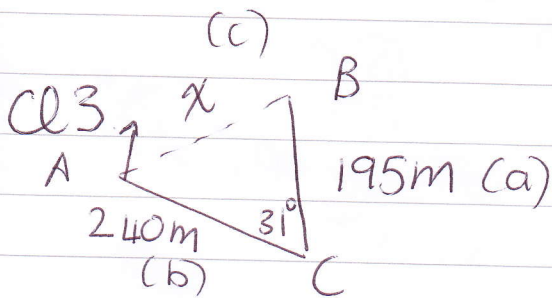 (c)
Q3. x B
A 195m (a)
240m 31°
(b) C